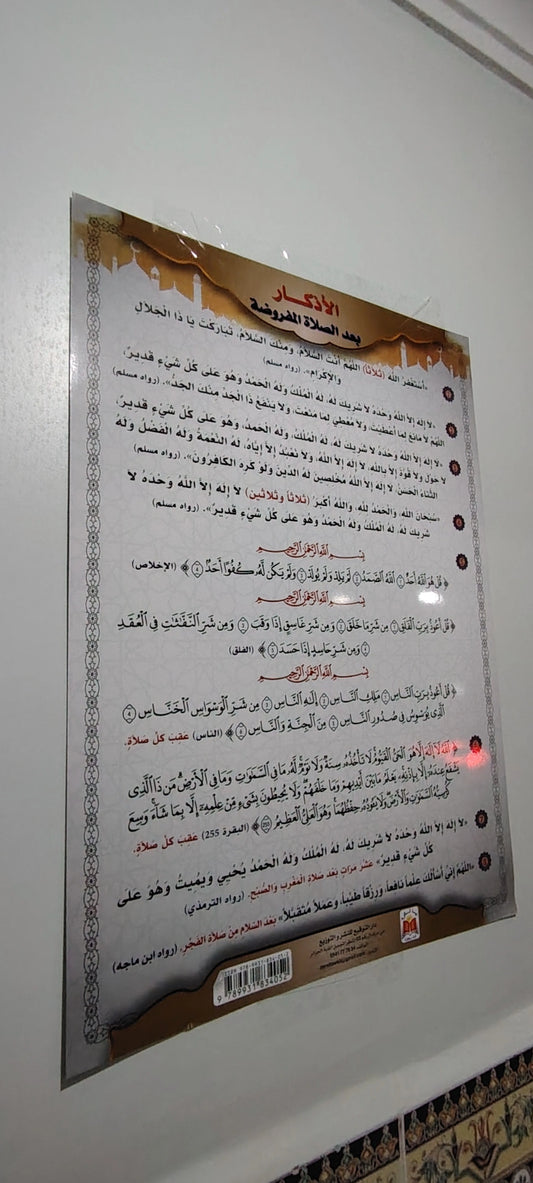 الأذكار
بعد الصلاة المفروضة
«أستغفرُ اللَّه (ثلاثًا) اللَّهُمَّ أنْتَ السَّلاَمُ، ومنْكَ السَّلاَمُ، تَبَاركْتَ يَا ذَا الْجَلاَلِ
والإِكْرَامِ». (رواه مسلم)
«لا إله إلاَّ اللَّهُ وحْدَهُ لا شريكَ لهُ، لهُ المُلْكُ ولهُ الحَمْدُ وهُوَ عَلى كُلِّ شَيْءٍ قديرٌ،
اللَّهُمَّ لا مانعَ لما أعْطيتَ، ولا مُعْطي لما منَعْتَ، ولا ينْفَعُ ذا الجَدِّ منكَ الجَدُّ». (رواه مسلم)
«لا إله إلاَّ اللَّهُ وحْدَهُ لا شريكَ لهُ، لهُ المُلْكُ، ولهُ الحَمْدُ، وهُوَ عَلى كُلِّ شَيْءٍ قديرٌ،
لا حوْلَ ولا قُوَّةَ إلاَّ باللَّهِ، لا إله إلاَّ اللَّهُ، ولا نعْبُدُ إلاَّ إيَّاهُ، لهُ النِّعْمَةُ ولهُ الفضْلُ ولهُ
الثَّناءُ الحَسَنُ، لا إله إلاَّ اللَّهُ مُخْلِصينَ لهُ الدِّينَ ولوْ كَرهَ الكَافرُونَ». (رواه مسلم)
«سُبْحَانَ اللَّهِ، والحَمْدُ للَّهِ، واللَّهُ أكْبَرُ (ثلاثًا وثلاثين) لاَ إلهَ إلاَّ اللَّهُ وَحْدَهُ لاَ
شَريكَ لهُ، لهُ المُلْكُ ولهُ الحَمْدُ وهُوَ عَلى كُلِّ شَيْءٍ قديرٌ». (رواه مسلم)
بِسْمِ اللَّهِ الرَّحْمَنِ الرَّحِيمِ
﴿ قُلْ هُوَ اللَّهُ أَحَدٌ ① اللَّهُ الصَّمَدُ ② لَمْ يَلِدْ وَلَمْ يُولَدْ ③ وَلَمْ يَكُن لَّهُ كُفُوًا أَحَدٌ ④ ﴾ (الإخلاص)
بِسْمِ اللَّهِ الرَّحْمَنِ الرَّحِيمِ
﴿ قُلْ أَعُوذُ بِرَبِّ الْفَلَقِ ① مِن شَرِّ مَا خَلَقَ ② وَمِن شَرِّ غَاسِقٍ إِذَا وَقَبَ ③ وَمِن شَرِّ النَّفَّاثَاتِ فِي الْعُقَدِ
④ وَمِن شَرِّ حَاسِدٍ إِذَا حَسَدَ ⑤ ﴾ (الفلق)
بِسْمِ اللَّهِ الرَّحْمَنِ الرَّحِيمِ
﴿ قُلْ أَعُوذُ بِرَبِّ النَّاسِ ① مَلِكِ النَّاسِ ② إِلَهِ النَّاسِ ③ مِن شَرِّ الْوَسْوَاسِ الْخَنَّاسِ ④
الَّذِي يُوَسْوِسُ فِي صُدُورِ النَّاسِ ⑤ مِنَ الْجِنَّةِ وَالنَّاسِ ⑥ ﴾ (الناس) عقبَ كلِّ صلاةٍ.
﴿ اللَّهُ لَا إِلَهَ إِلَّا هُوَ الْحَيُّ الْقَيُّومُ لَا تَأْخُذُهُ سِنَةٌ وَلَا نَوْمٌ لَّهُ مَا فِي السَّمَوَاتِ وَمَا فِي الْأَرْضِ مَن ذَا الَّذِي
يَشْفَعُ عِندَهُ إِلَّا بِإِذْنِهِ يَعْلَمُ مَا بَيْنَ أَيْدِيهِمْ وَمَا خَلْفَهُمْ وَلَا يُحِيطُونَ بِشَيْءٍ مِّنْ عِلْمِهِ إِلَّا بِمَا شَاءَ وَسِعَ
كُرْسِيُّهُ السَّمَوَاتِ وَالْأَرْضَ وَلَا يَئُودُهُ حِفْظُهُمَا وَهُوَ الْعَلِيُّ الْعَظِيمُ ﴾ (البقرة 255) عقبَ كلِّ صلاةٍ.
«لا إله إلاَّ اللَّهُ وحْدَهُ لا شريكَ لهُ، لهُ المُلْكُ ولهُ الحَمْدُ يُحْيي ويُميتُ وهُوَ عَلى
كُلِّ شَيْءٍ قديرٌ» عشْرَ مرَّاتٍ بعْد صَلاة المَغْرب والصُّبْح. (رواه الترمذي)
«اللَّهُمَّ إنِّي أسْألُكَ علْماً نافعاً، ورزْقاً طيِّباً، وعمَلاً مُتقبَّلاً» بعْدَ السَّلامِ مِن صَلاَةِ الفَجْرِ. (رواه ابن ماجه)
دار التوفيع للنشر والتوزيع
9 789931 834052